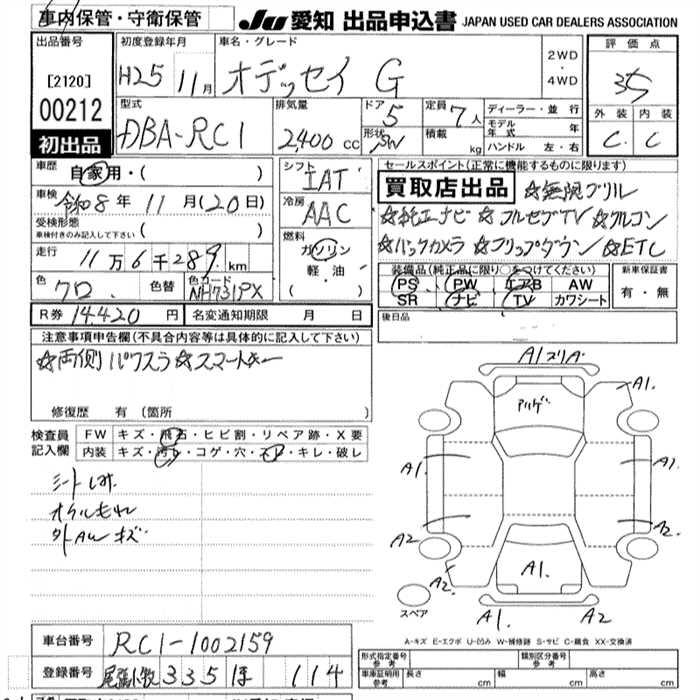 車内保管・守衛保管
JU 愛知 出品申込書 JAPAN USED CAR DEALERS ASSOCIATION
出品番号
[2120]
00212
初出品
初度登録年月
H25 11月
車名・グレード
オデッセイ G
2WD
・
4WD
評価点
3.5
外装 内装
C C
型式
DBA-RC1
排気量
2400 cc
ドア
5
形状
SW
定員
7人
積載
kg
ディーラー・並行
モデル年式 年
ハンドル 左・右
車歴
自家用・( )
車検
令和8年 11月(20日)
受検形態
車検付きのみ記入して下さい ( )
走行
11万6千289km
色
クロ
色替
色コード
NH731PX
シフト
IAT
冷房
AAC
燃料
ガソリン
軽油
( )
セールスポイント(正常に機能するものに限ります)
買取店出品 ☆無限グリル
☆純正ナビ ☆フルセグTV ☆クルコン
☆バックカメラ ☆フリップダウン ☆ETC
装備品(純正品に限り○をつけてください)
PS PW エアB AW
SR ナビ TV カワシート
新車保証書
有・無
R券 14.420円
名変通知期限 月 日
後日品
注意事項申告欄(不具合内容等は具体的に記入して下さい)
☆両側パワスラ ☆スマートキー
修復歴 有(箇所 )
検査員
記入欄
FW キズ・飛石・ヒビ割・リペア跡・X要
内装 キズ・汚れ・コゲ・穴・スレ・キレ・破レ
シートしみ
オイルもれ
外AWキズ
A1スリA
A1.
アリゲ
A1.
A1.
A2
A2.
A2.
A1.
A1.
A2
スペア
A-キズ E-エクボ U-凹み W-補修跡 S-サビ C-腐食 XX-交換済
車台番号
RC1-1002159
登録番号
尾張小牧 335 ほ 114
形式指定番号
参考
類別区分番号
参考
車庫証明用
参考
長さ cm
幅 cm
高さ cm